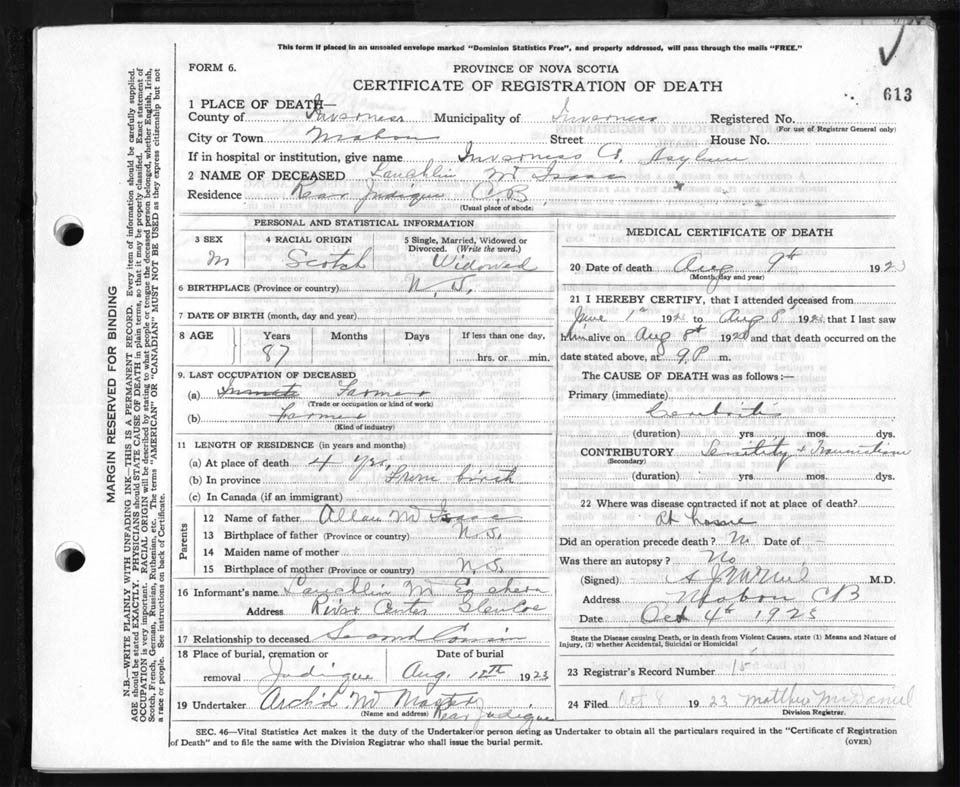 This form if placed in an unsealed envelope marked "Dominion Statistics Free", and properly addressed, will pass through the mails "FREE."
FORM 6.
PROVINCE OF NOVA SCOTIA
CERTIFICATE OF REGISTRATION OF DEATH
613
1 PLACE OF DEATH—
County of Inverness Municipality of Inverness Registered No.
(For use of Registrar General only)
City or Town Mabou Street House No.
If in hospital or institution, give name Inverness Co. Asylum
2 NAME OF DECEASED Lauchlin Mc Isaac
Residence Rear Judique C.B
(Usual place of abode)
PERSONAL AND STATISTICAL INFORMATION
3 SEX 4 RACIAL ORIGIN 5 Single, Married, Widowed or Divorced. (Write the word.)
M Scotch Widowed
6 BIRTHPLACE (Province or country) N.S.
7 DATE OF BIRTH (month, day and year)
8 AGE Years Months Days If less than one day,
87 hrs. or min.
9. LAST OCCUPATION OF DECEASED
(a) Inmate Farmer
(Trade or occupation or kind of work)
(b) Farmer
(Kind of industry)
11 LENGTH OF RESIDENCE (in years and months)
(a) At place of death 4 yrs.
(b) In province From birth
(c) In Canada (if an immigrant)
Parents
12 Name of father Allan Mc Isaac
13 Birthplace of father (Province or country) N.S.
14 Maiden name of mother
15 Birthplace of mother (Province or country) N.S.
16 Informant's name Lauchlin Mc Eachern
Address River Center Glencoe
17 Relationship to deceased Second Cousin
18 Place of burial, cremation or removal Date of burial
Judique Aug. 12th 1923
19 Undertaker Arch'd Mc Master
(Name and address) Rear Judique
MEDICAL CERTIFICATE OF DEATH
20 Date of death Aug 9th 1923
(Month, day and year)
21 I HEREBY CERTIFY, that I attended deceased from
June 1st 192 to Aug 8th 192 that I last saw
him alive on Aug 8th 192 and that death occurred on the
date stated above, at 9 P m.
The CAUSE OF DEATH was as follows:—
Primary (immediate)
Cerebritis
(duration) yrs mos. dys.
CONTRIBUTORY Senility &
(Secondary)
(duration) yrs. mos. dys.
22 Where was disease contracted if not at place of death?
At home
Did an operation precede death? No Date of —
Was there an autopsy? No
(Signed) M.D.
Address Mabou CB
Date Oct 4th 1923
State the Disease causing Death, or in death from Violent Causes, state (1) Means and Nature of Injury, (2) whether Accidental, Suicidal or Homicidal
23 Registrar's Record Number 15
24 Filed Oct 8 1923 Matthew McDaniel
Division Registrar.
SEC. 46—Vital Statistics Act makes it the duty of the Undertaker or person acting as Undertaker to obtain all the particulars required in the "Certificate of Registration
of Death" and to file the same with the Division Registrar who shall issue the burial permit.
(OVER)
MARGIN RESERVED FOR BINDING
N.B.—WRITE PLAINLY WITH UNFADING INK—THIS IS A PERMANENT RECORD. Every item of information should be carefully supplied.
AGE should be stated EXACTLY. PHYSICIANS should STATE CAUSE OF DEATH in plain terms, so that it may be properly classified. Exact statement of
OCCUPATION is very important. RACIAL ORIGIN will be described by stating to what people or tongue the deceased person belonged, whether English, Irish,
Scotch, French, German, Russian, Ruthenian, etc. The terms "AMERICAN" OR "CANADIAN" MUST NOT BE USED as they express citizenship but not
a race or people. See instructions on back of Certificate.